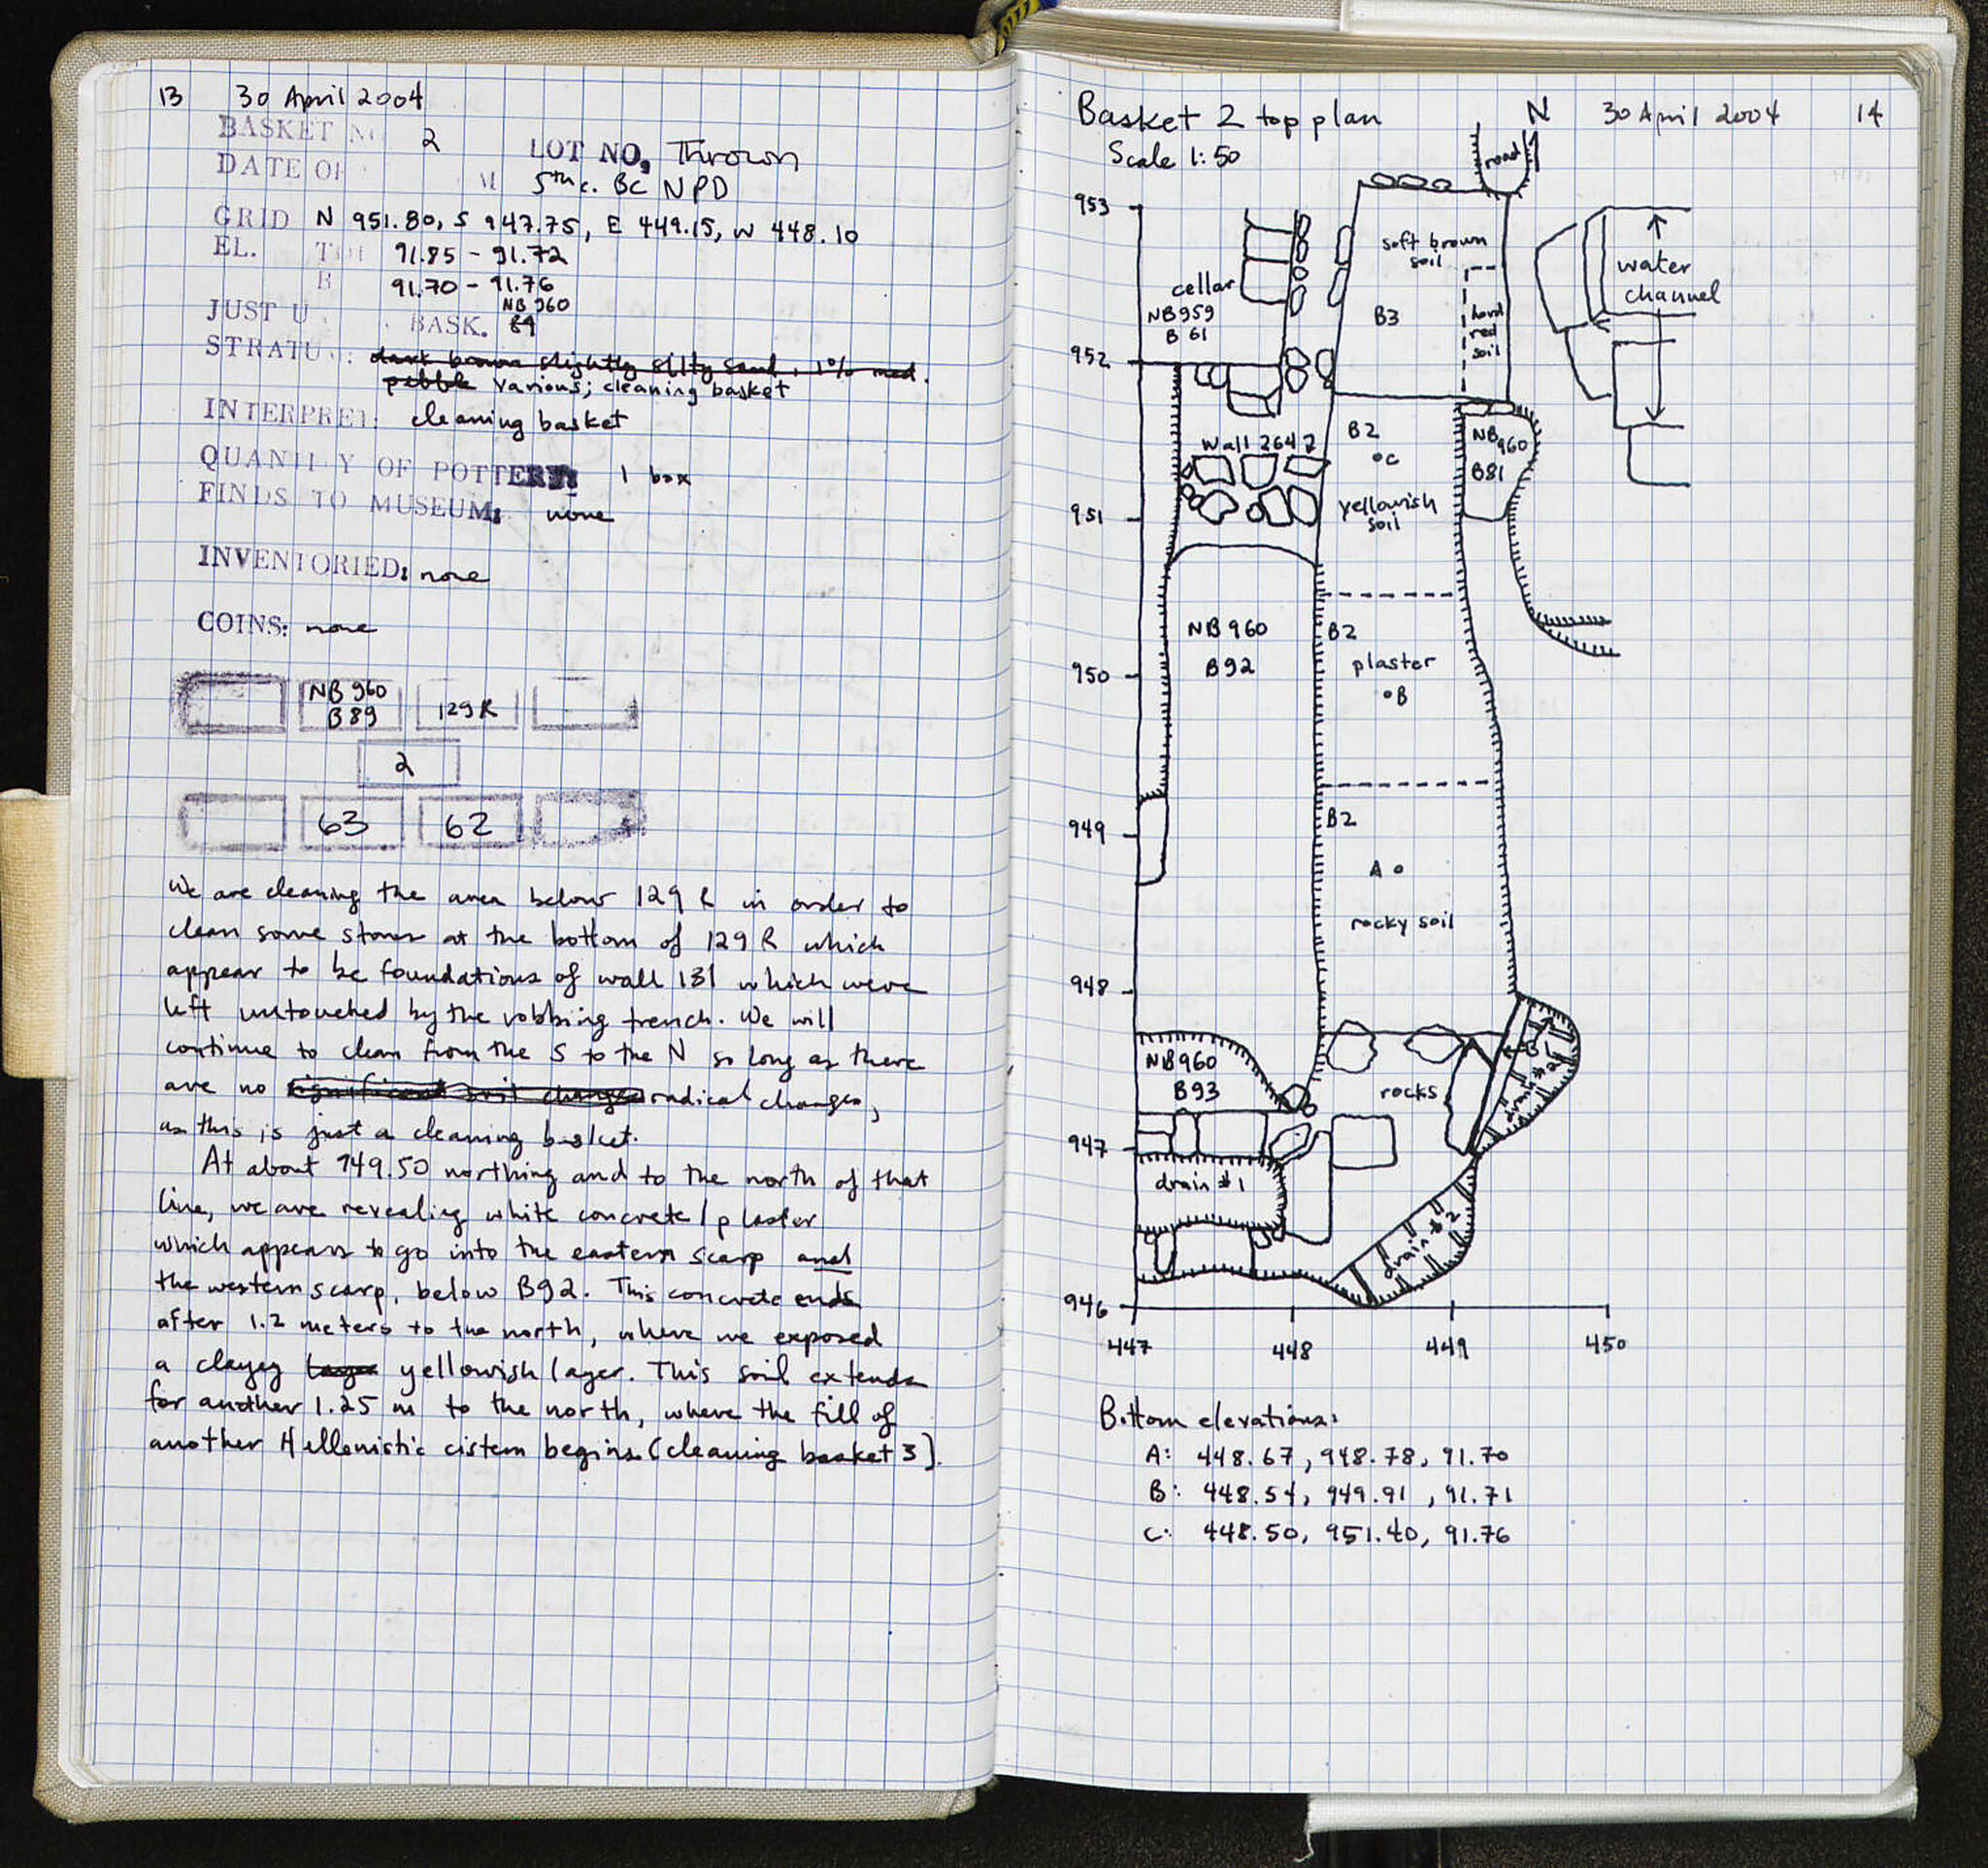 13 30 April 2004
BASKET NO 2 LOT NO. Thrown
DATE OF M 5th c. BC NPD
GRID N 951.80, S 947.75, E 449.15, W 448.10
EL. TO 91.85 - 91.72
B 91.70 - 91.76
NB 960
JUST U BASK. 89
STRATU : dark brown slightly silty sand, 1% med.
pebble various; cleaning basket
INTERPRET: cleaning basket
QUANTITY OF POTTERY: 1 box
FINDS TO MUSEUM: none
INVENTORIED: none
COINS: none
NB 960
B 89
129 R
2
63 62
We are cleaning the area below 129 R in order to
clean some stones at the bottom of 129 R which
appear to be foundations of wall 131 which were
left untouched by the robbing trench. We will
continue to clean from the S to the N so long as there
are no significant soil changes radical changes,
as this is just a cleaning basket.
At about 949.50 northing and to the north of that
line, we are revealing white concrete/plaster
which appears to go into the eastern scarp and
the western scarp, below B92. This concrete ends
after 1.2 meters to the north, where we exposed
a clayey layer yellowish layer. This soil extends
for another 1.25 m to the north, where the fill of
another Hellenistic cistern begins (cleaning basket 3).
Basket 2 top plan N 30 April 2004 14
Scale 1:50
road
953
soft brown
soil
water
channel
cellar
NB 959
B 61
B3
hard
red
soil
952
Wall 2642
B2
°C
NB 960
B81
951
yellowish
soil
NB 960
B92
B2
950
plaster
°B
949
B2
A°
rocky soil
948
NB 960
B93
rocks
drain #2
947
drain #1
drain #2
946
447 448 449 450
Bottom elevations:
A: 448.67, 948.78, 91.70
B: 448.54, 949.91, 91.71
C: 448.50, 951.40, 91.76